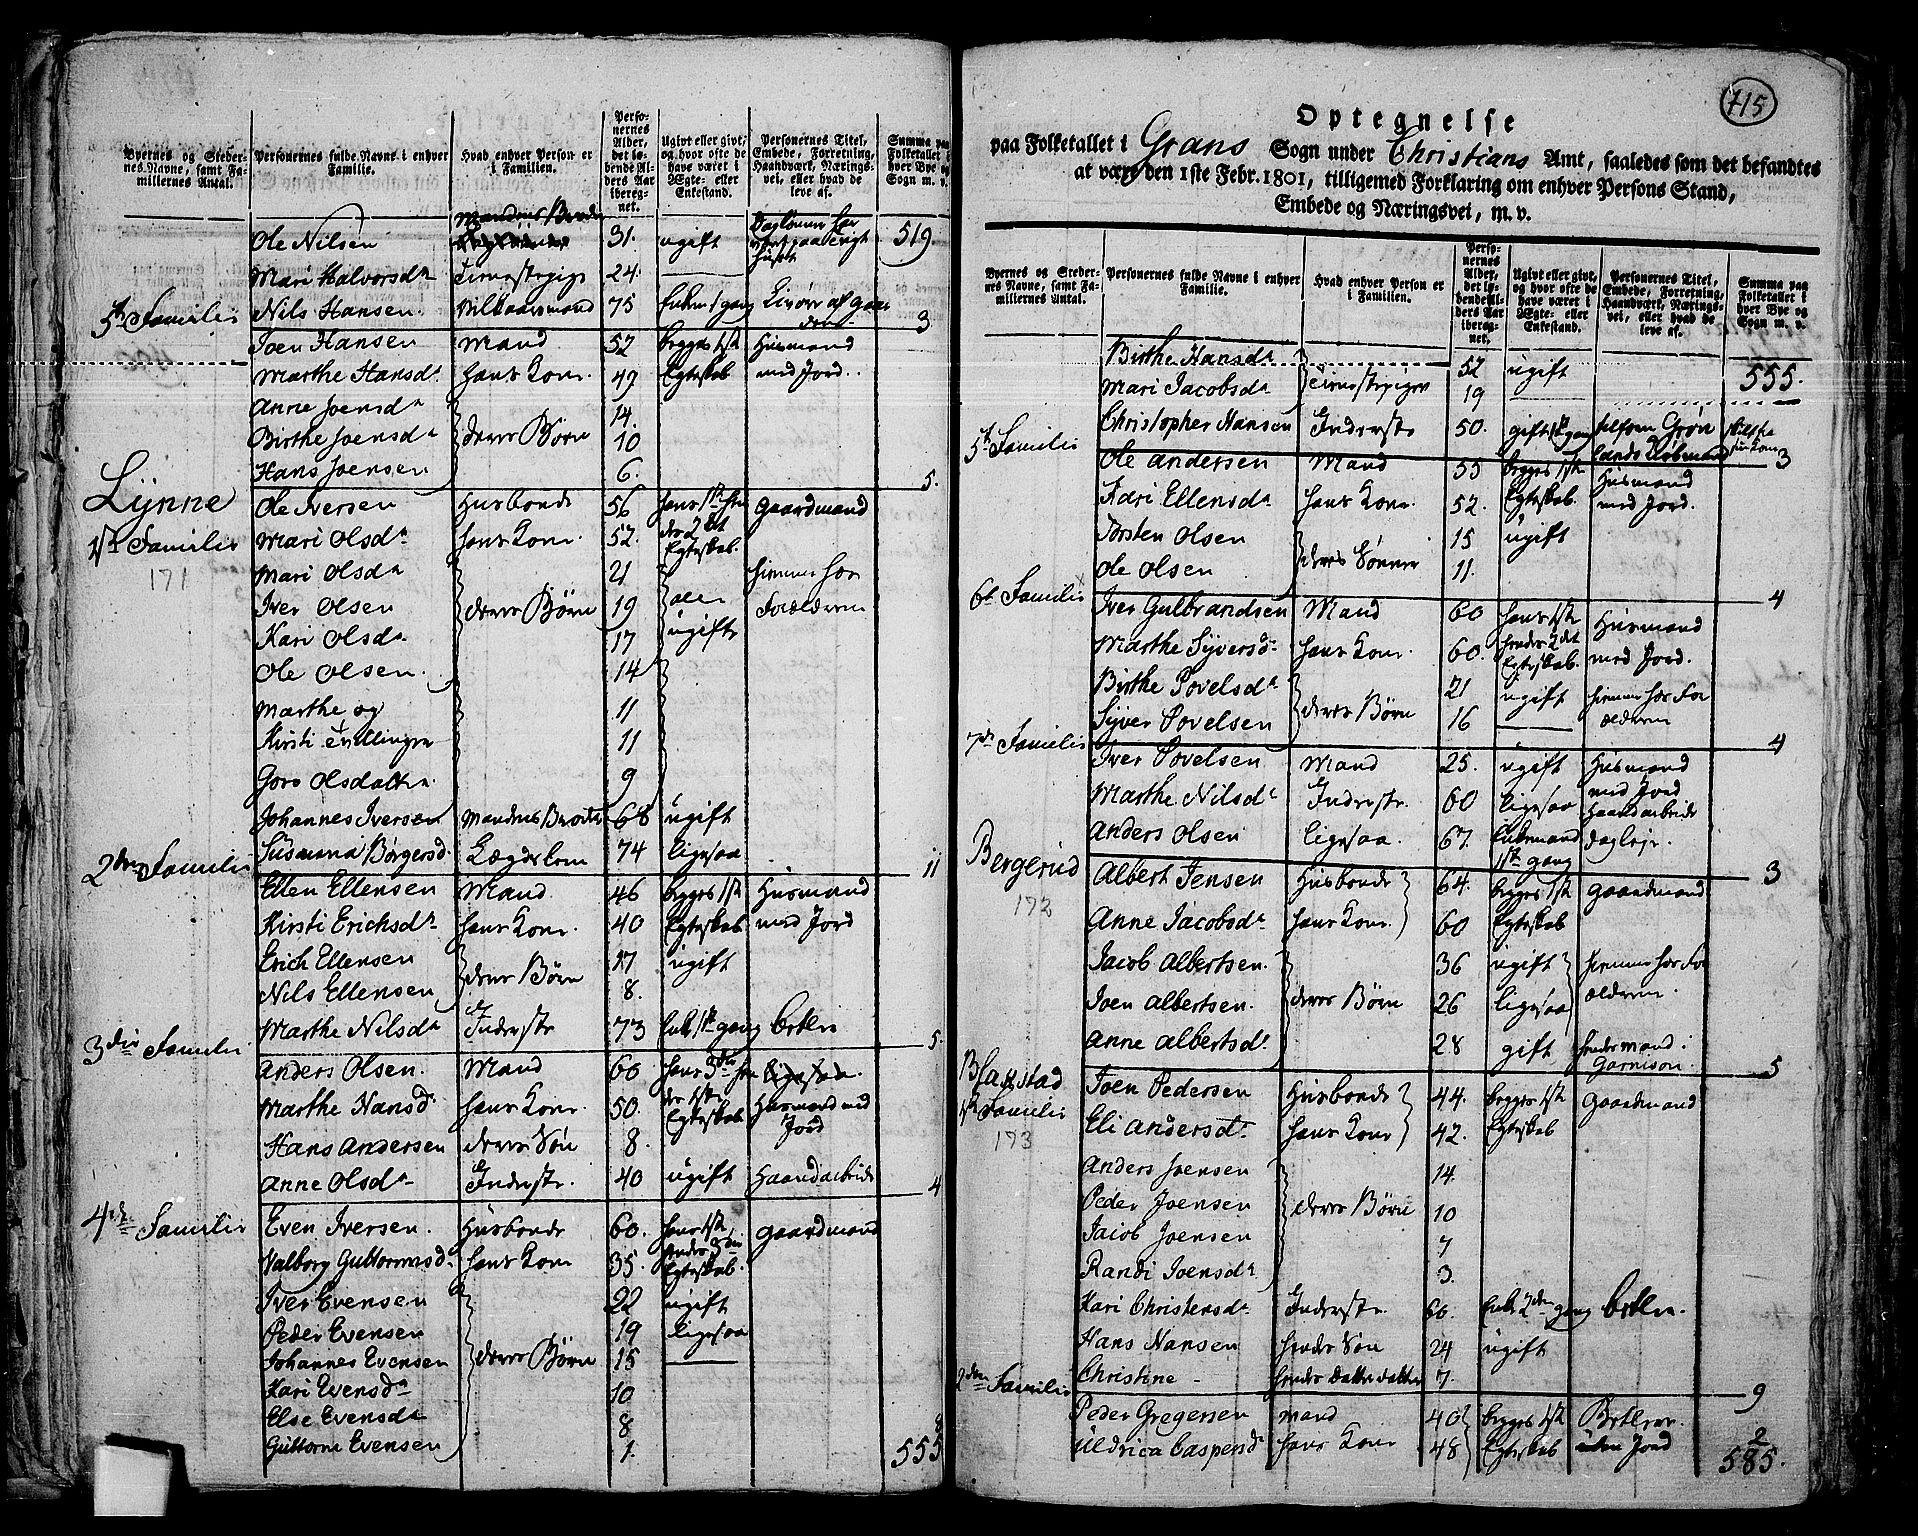 Byernes og Stedernes Navne, samt Familliernes Antal. | Personernes fulde Navne i enhver Familie. | Hvad enhver Person er i Familien. | Personernes Alder, det løbende Alders Aar iberegnet. | Ugivt eller givt, og hvor ofte de have været i Ægte- eller Enkestand. | Personernes Titel, Embede, Forretning, Haandværk, Næringsvei, eller hvad de leve af. | Summa paa Folketallet i hver Bye og Sogn m. v.
Ole Nilsen | Mandens Broder | 31. | ugift | 519
Mari Halvorsda | Tienestepige | 24.
Nils Hansen. | Vilkaarsmand | 75 | Enkem 1 gang | Livøre af gaarden | 3
5te Familie
Joen Hansen | Mand | 52 | begges 1ste | Huusmand
Marthe Hansda | hans Kone | 49 | Egteskab | med Jord.
Anne Joensda | 14.
Birthe Joensda | deres Børn | 10
Hans Joensen | 6. | 5.
Lynne
1ste Familie
171
Ole Iversen | Husbonde | 56 | hans 1ste hen | Gaardmand
Mari Olsda | hans Kone | 52. | des 2det Egteskab.
Mari Olsda | 21 | hiemme hos
Iver Olsen | deres Børn | 19 | alle | Forældrene
Kari Olsda | 17 | ugifte
Ole Olsen. | 14
Marthe og | 11
Kirsti tvillinger | 11
Goro Olsdatter | 9
Johannes Iversen | Mandens Broder | 68 | ugift
Susanna Børgersd. | Lægdslem | 74 | ligesaa | 11
2den Familie
Ellen Ellensen | Mand | 46 | begges 1ste | Huusmand
Kirsti Erichsda | hans Kone | 40 | Egteskab | med Jord
Erich Ellensen | 17 | ugift
Nils Ellensen | deres Børn | 8.
Marthe Nilsda | Inderste | 73 | Enke 1ste gang | betler | 5.
3die Familie
Anders Olsen. | Mand | 60 | hans 3die hen | ligesaa
Marthe Hansd | hans Kone | 50. | des 1ste Egteskab | Huusmand med Jord
Hans Andersen | deres Søn | 8.
Anne Olsda | Inderste | 40 | ugift | Haandarbeide | 4
4de Familie
Even Iversen. | Husbonde | 60. | hans 1ste | Gaardmand
Valborg Guttormsd. | hans Kone | 35. | hendes 3die Egteskab.
Iver Evensen | 22 | ugift
Peder Evensen | 19 | ligesaa
Johannes Evensen | deres Børn | 15
Kari Evensda | 10
Else Evensda | 8
Guttorm Evensen | 1. | 8
555
715
Optegnelse
paa Folketallet i Grans Sogn under Christians Amt, saaledes som det befandtes
at være den 1ste Febr. 1801, tilligemed Forklaring om enhver Persons Stand,
Embede og Næringsvei, m. v.
Byernes og Stedernes Navne, samt Familliernes Antal. | Personernes fulde Navne i enhver Familie. | Hvad enhver Person er i Familien. | Personernes Alder, det løbende Alders Aar iberegnet. | Ugivt eller givt, og hvor ofte de have været i Ægte- eller Enkestand. | Personernes Titel, Embede, Forretning, Haandværk, Næringsvei, eller hvad de leve af. | Summa paa Folketallet i hver Bye og Sogn m. v.
Birthe Hansda | 52 | ugift | 555.
Mari Jacobsda | Tienestepiger | 19
Christopher Hansen | Inderste | 50. | gift 1ste gang | 3
5te Familie
Ole Andersen | Mand | 55 | begges 1ste | Huusmand
Kari Ellensda | hans Kone | 52. | Egteskab. | med Jord.
Torsten Olsen | 15 | ugift
Ole Olsen | deres Sønner | 11. | 4
6te Familie
Iver Gulbrandsen | Mand | 60 | hans 1ste | Huusmand
Marthe Syversd. | hans Kone. | 60. | hendes 2det Egteskab. | med Jord.
Birthe Povelsda | 21 | ugift | hiemme hos For
Syver Povelsen | deres Børn | 16 | ældrene | 4
7de Familie
Iver Povelsen | Mand | 25. | ugift | Huusmand med Jord
Marthe Nilsda | Inderste. | 60 | ligesaa | Haandarbeide
Anders Olsen | ligesaa | 67. | Enkemand 1ste gang | dagleje. | 3
Bergerud
172
Albert Jensen | Husbonde | 64. | begges 1ste | Gaardmand
Anne Jacobsda | hans Kone. | 60 | Egteskab
Jacob Albertsen. | 36 | ugift | hiemme hos For
Joen Albertsen. | deres Børn | 26 | ligesaa | ældrene.
Anne Albertsda | 28 | gift | hendes mand i Garnison. | 5
Blaxstad
1ste Familie
173
Joen Pedersen | Husbonde | 44. | begges 1ste | Gaardmand
Eli Andersda | hans Kone | 42. | Egteskab
Anders Joensen | 14.
Peder Joensen | deres Børn | 10
Jacob Joensen | 7
Randi Joensda | 3.
Kari Christensda | Inderste. | 60. | Enke 2den gang | betler.
Hans Hansen | hendes Søn | 24 | ugift
Christine - | hendes Datterdatter | 7. | 9
2den Familie
Peder Gregersen | Mand | 40 | begges 1ste | Betlere
Uldrica Caspersda | hans Kone | 48 | Egteskab | uden Jord | 2
585.